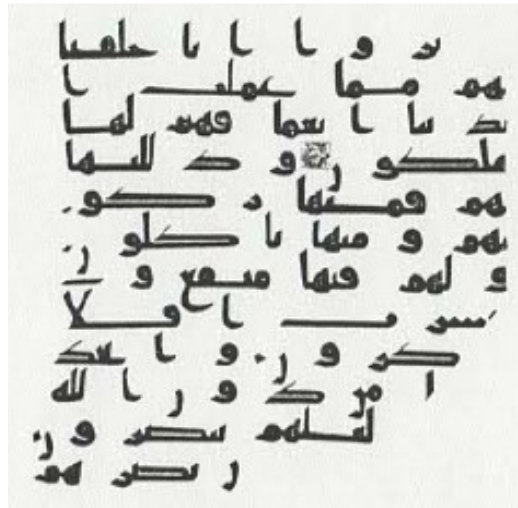 ير و ا ا نا خلقنا
لهم مما عملت ا
يد ينا ا نعما فهم لها
ملكو ن و ذ للنها
لهم فمنها ر كو
بهم و منها يا كلو ن
و لهم فيها منفع و
ا فلا
يشكر و ن و ا تخذ
ا من د و ن ا لله
لعلهم ينصر و ن
ن نصر هم